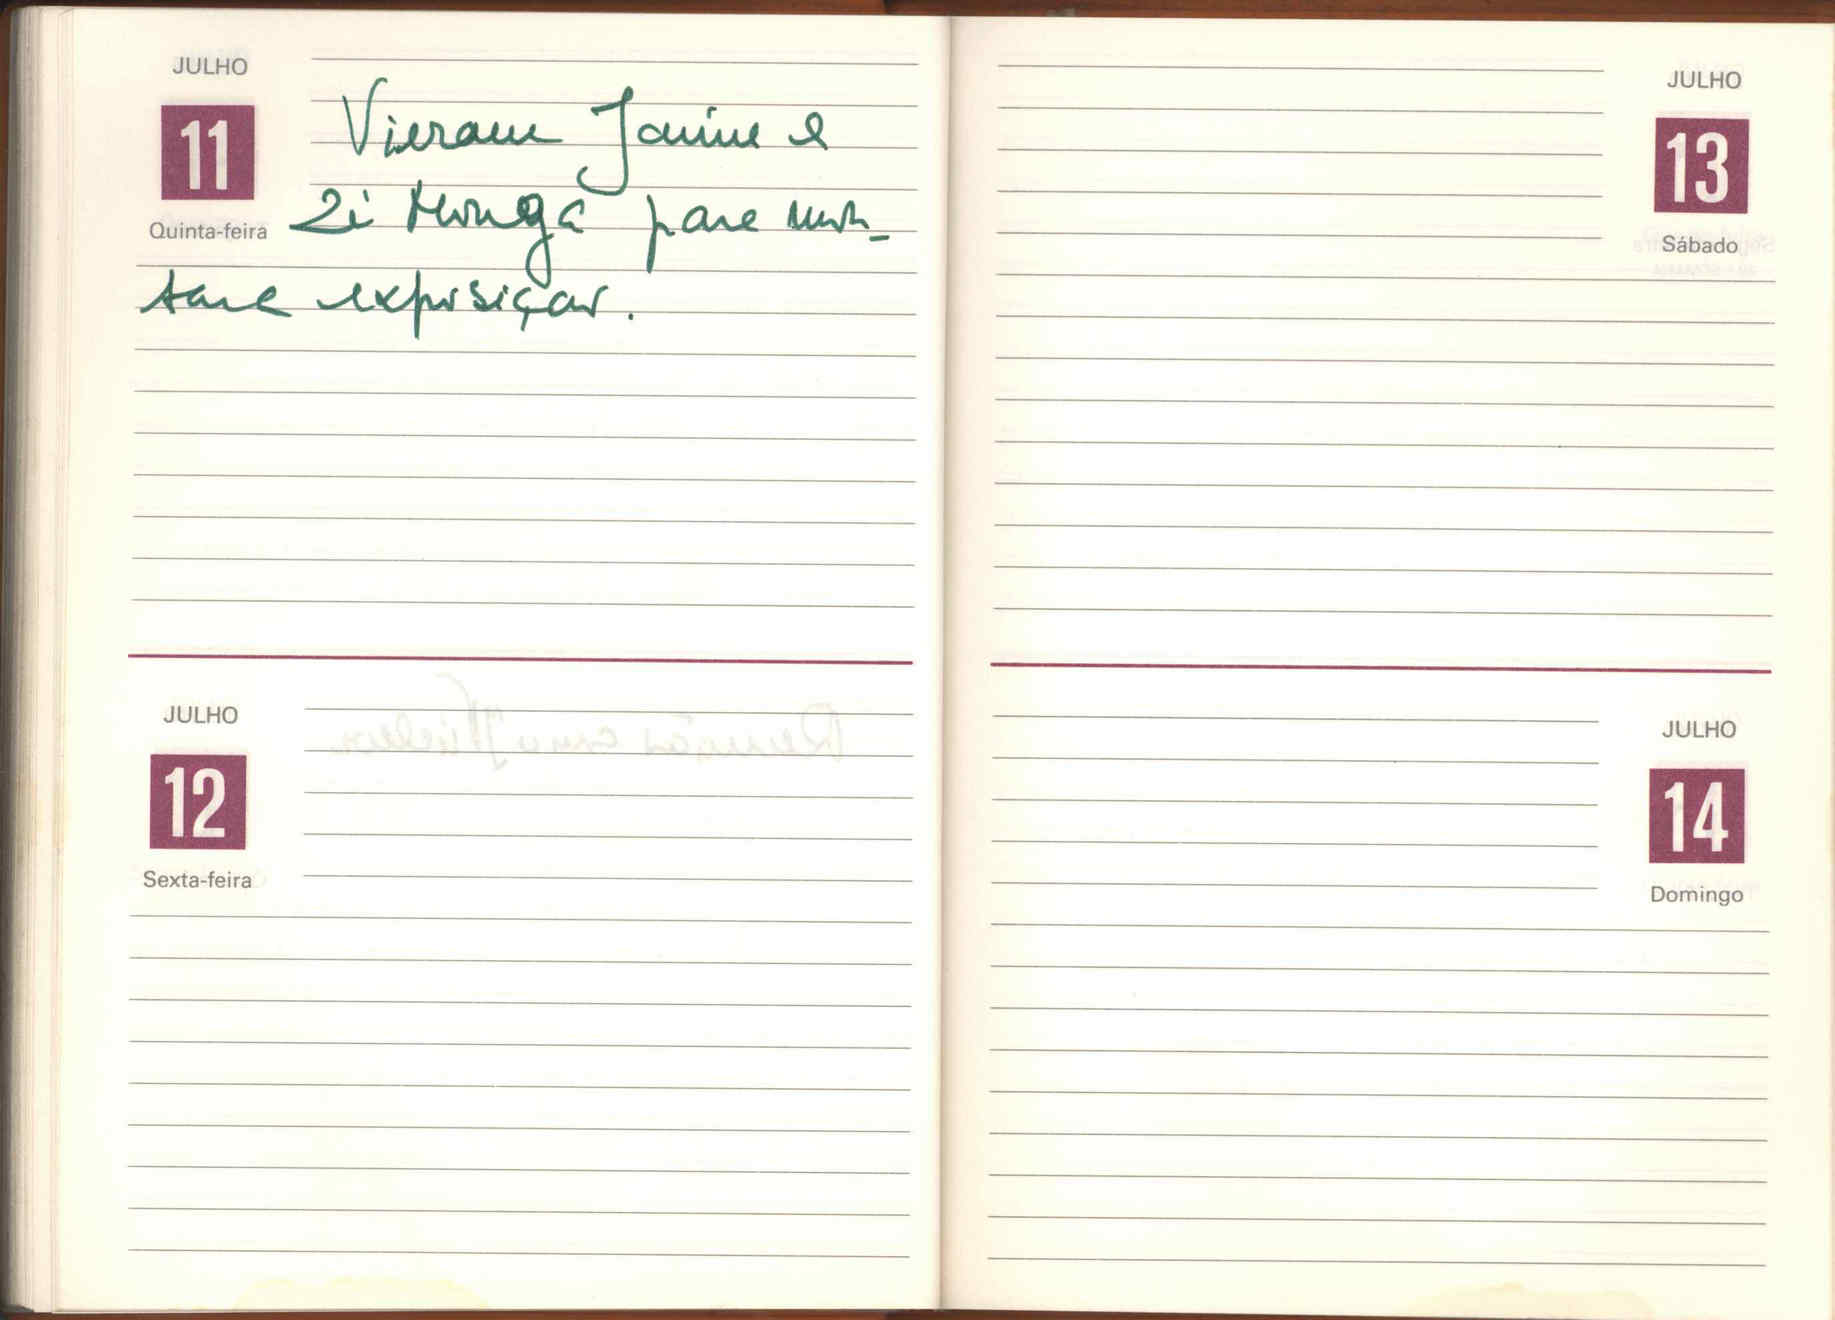 JULHO
11
Quinta-feira
Vieram Janine e
Zé Monga para mon-
tar exposição.
JULHO
12
Sexta-feira
JULHO
13
Sábado
JULHO
14
Domingo